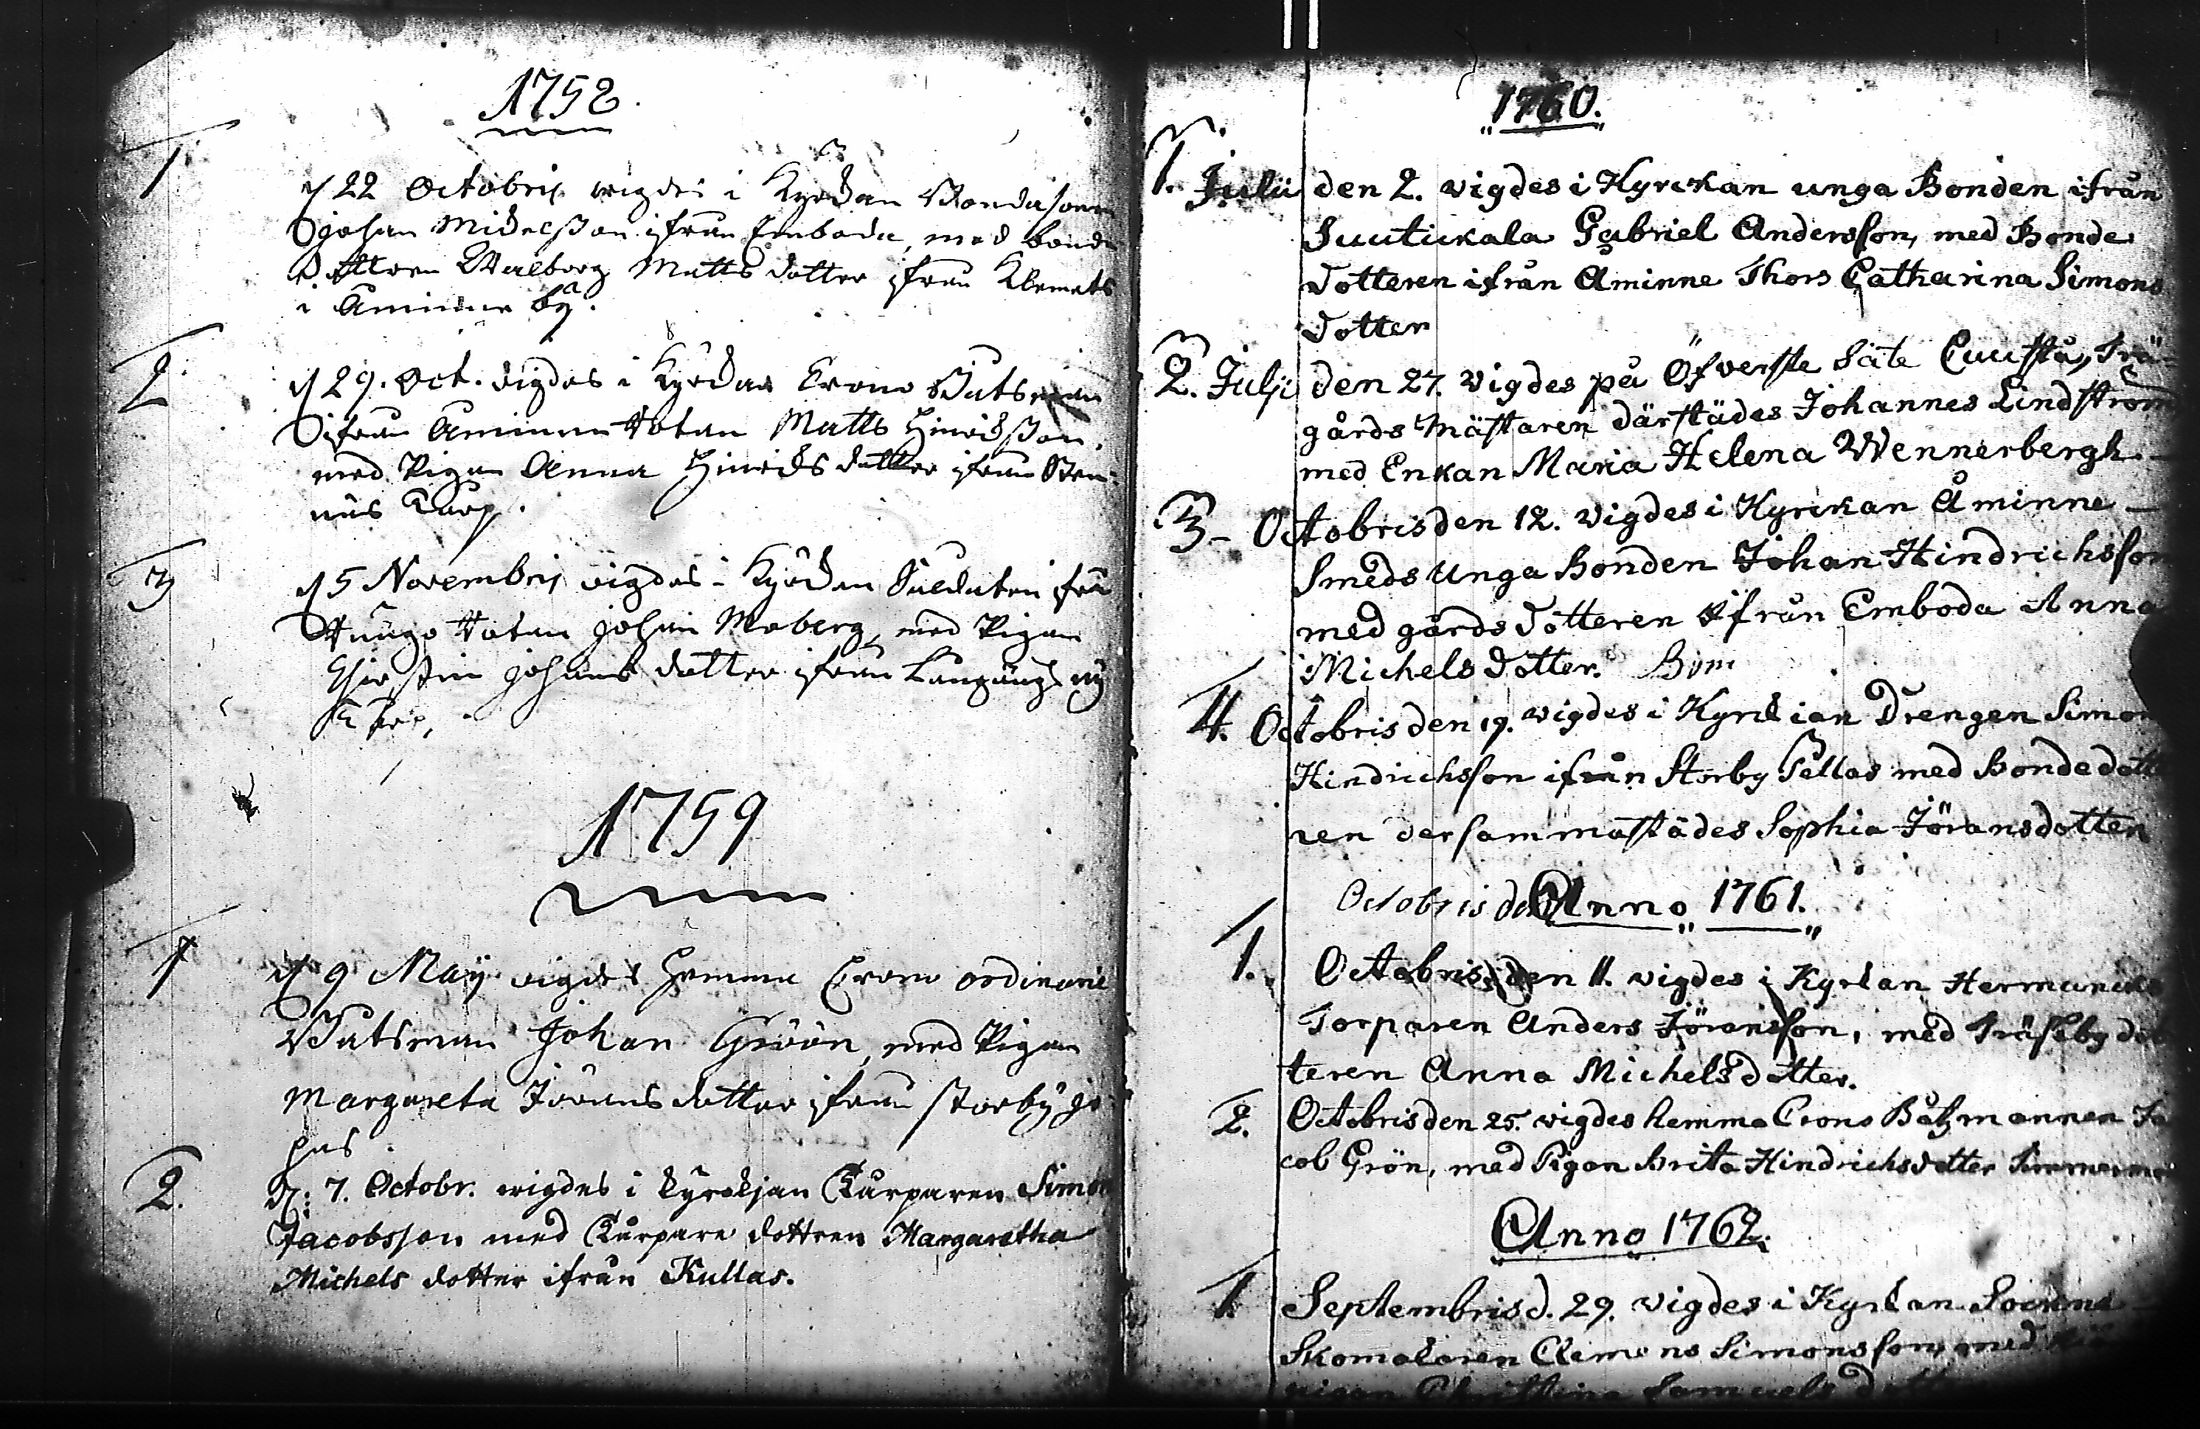 1758.
1 d 22 Octobris wigdes i Kyrckan Bondasonen
Johan Michelsson ifrån Emboda, med bonde
dottren Walborg Matts dotter ifrån Klemets
i Åminne by.
2 d 29. Oct. vigdes i Kyrckan Crono Båtsman
ifrån Åminne Matts Hinrichsson,
med Pigan Anna Hinrichs dotter ifrån
Torp.
3 d 5 Novembris vigdes i Kyrckan Soldaten ifrån
Johan Moberg, med Pigan
Christin Johans dotter ifrån
Torp.
1759
1 d 9 Maÿ vigdes hemma Crono ordinarie
Båtsman Johan Gröön, med Pigan
Margareta Jörans dotter ifrån storbÿ
2. D: 7. Octobr. wigdes i kyrckjan Torparen Simon
Jacobsson med Torpare dottren Margaretha
Michels dotter ifrån Kullas.
1760.
1. Julii den 2. vigdes i Kyrckan unga Bonden ifrån
Juutickala Gabriel Andersson, med Bonde
dotteren ifrån Åminne Thors Catharina Simons
dotter
2. Julii den 27. vigdes på Öfverste Säte Cuusto, Trä-
gårds Mästaren därstädes Johannes Lindström
med Enkan Maria Helena Wennerbergh.
3 - Octobris den 12. vigdes i Kyrckan Åminne
Smeds Unga Bonden Johan Hindrichsson
med gårds dotteren ifrån Emboda Anna
Michels dotter.
4. Octobris den 19. vigdes i Kyrckian Drengen Simon
Hindrichsson ifrån Storby Pellas med Bonde dotte
ren der sammastädes Sophia Jöransdotter
Octobris den Anno 1761.
1. Octobris den 11. vigdes i Kyrkan
Torparen Anders Jöransson, med Träskby dot
teren Anna Michelsdotter.
2. Octobris den 25. vigdes hemma Crono Båtzmannen Ja
cob Grön, med Pigan Brita Hindrichsdotter
Anno 1762.
1 Septembris d. 29. vigdes i Kyrkan Sockne
Skomakaren Clemens Simonsson, med
pigan Christina Samuels dotter